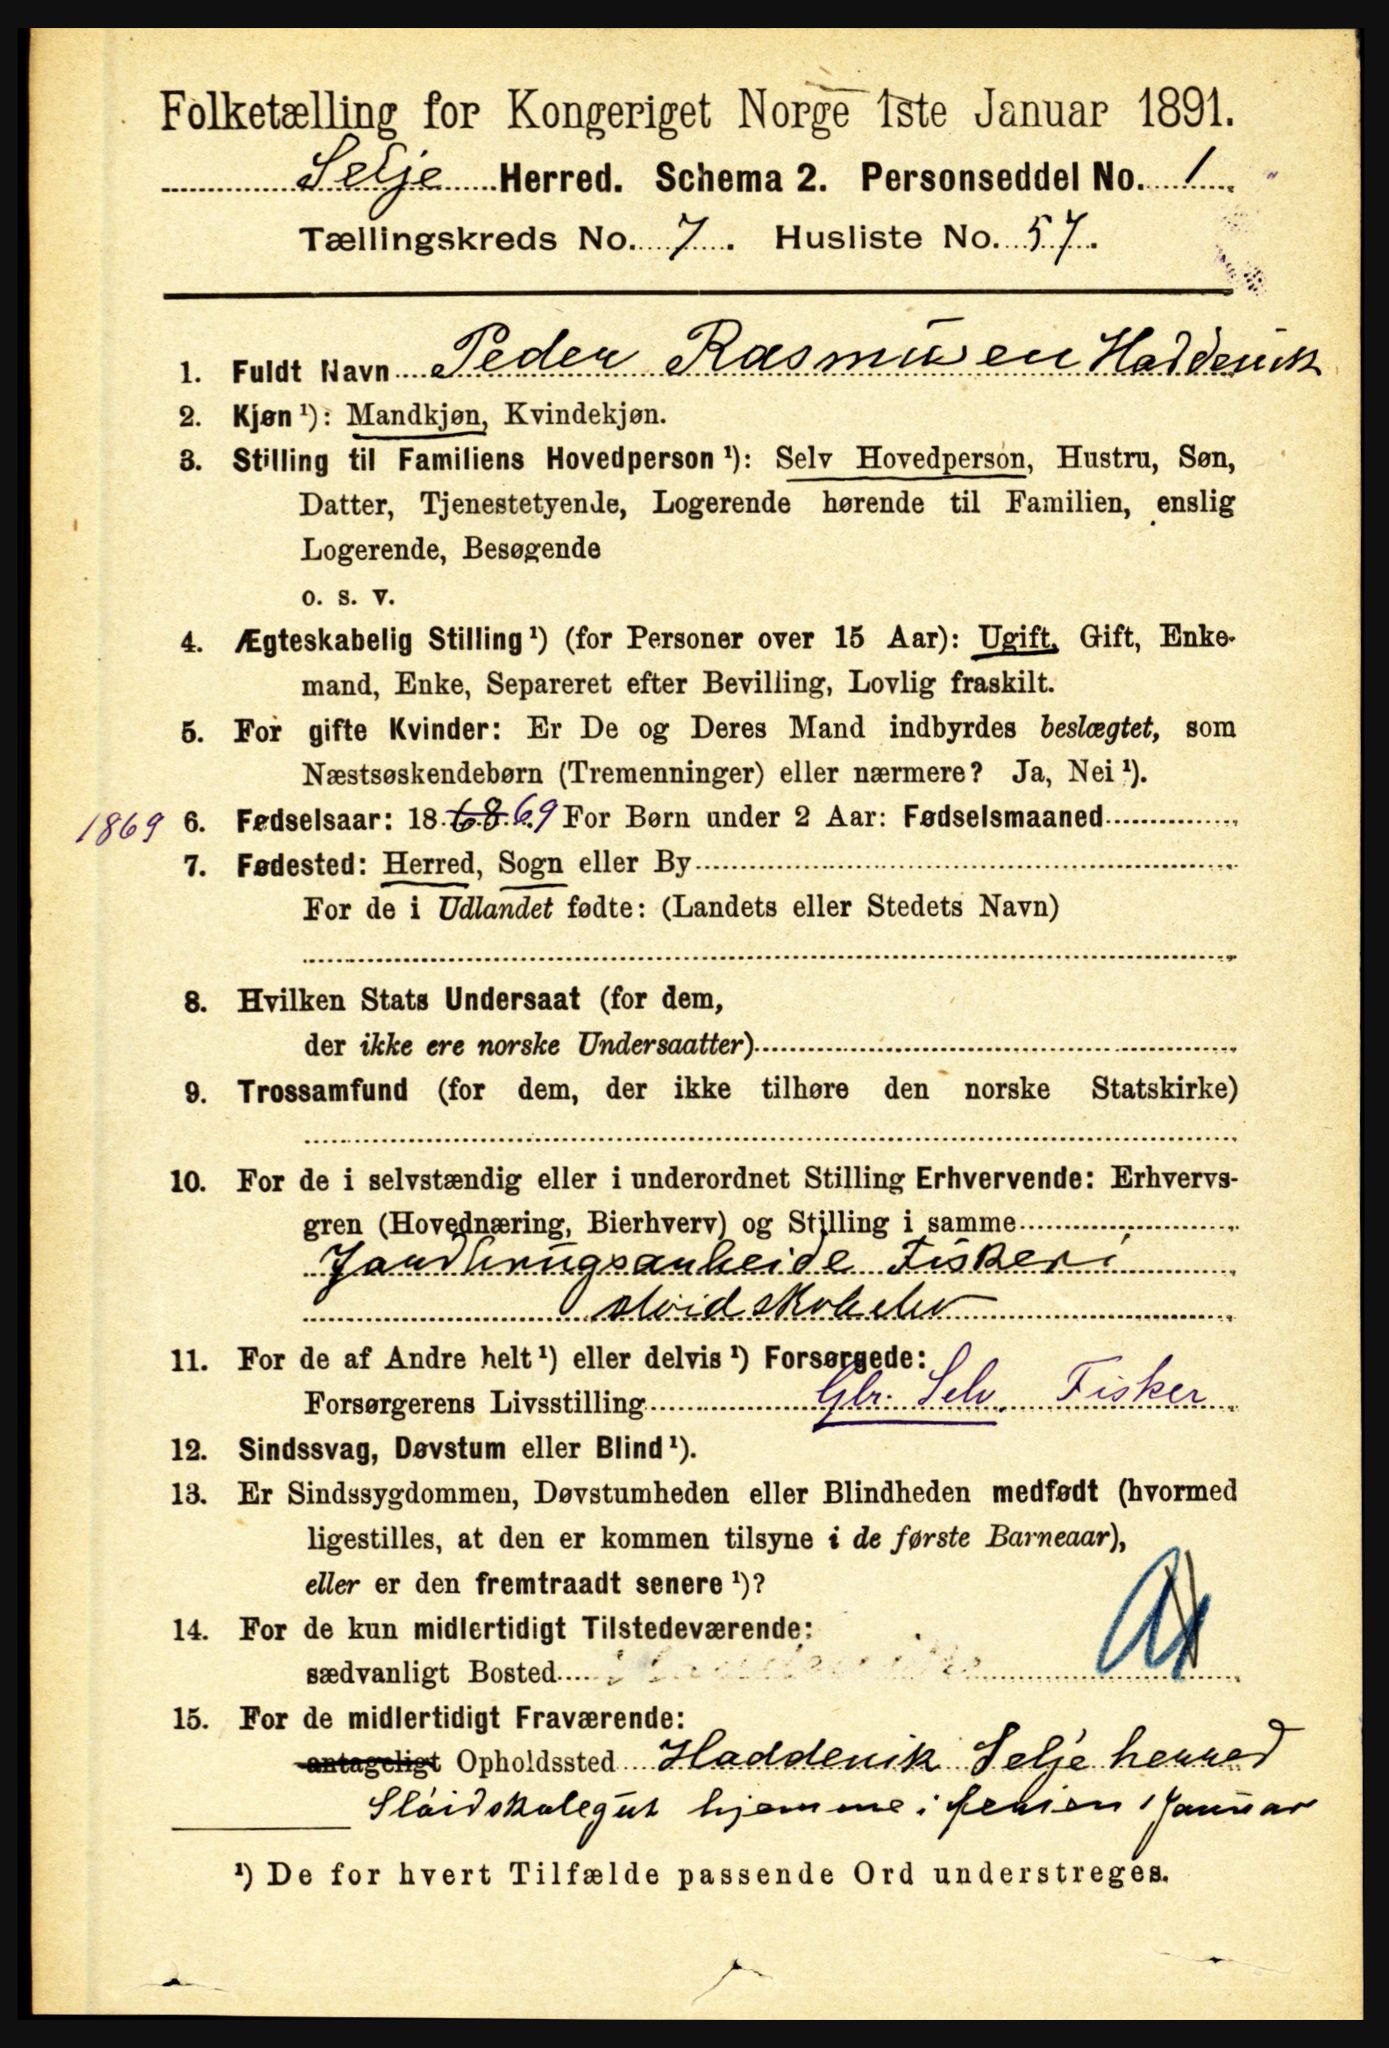 Folketælling for Kongeriget Norge 1ste Januar 1891.
Selje Herred. Schema 2. Personseddel No. 1
Tællingskreds No. 7. Husliste No. 57.
1. Fuldt Navn Peder Rasmusen Haddevik
2. Kjøn ¹): Mandkjøn, Kvindekjøn.
3. Stilling til Familiens Hovedperson ¹): Selv Hovedperson, Hustru, Søn,
Datter, Tjenestetyende, Logerende hørende til Familien, enslig
Logerende, Besøgende
o. s. v.
4. Ægteskabelig Stilling ¹) (for Personer over 15 Aar): Ugift, Gift, Enke-
mand, Enke, Separeret efter Bevilling, Lovlig fraskilt.
5. For gifte Kvinder: Er De og Deres Mand indbyrdes beslægtet, som
Næstsøskendebørn (Tremenninger) eller nærmere? Ja, Nei ¹).
1869 6. Fødselsaar: 18 68 69 For Børn under 2 Aar: Fødselsmaaned
7. Fødested: Herred, Sogn eller By
For de i Udlandet fødte: (Landets eller Stedets Navn)
8. Hvilken Stats Undersaat (for dem,
der ikke ere norske Undersaatter)
9. Trossamfund (for dem, der ikke tilhøre den norske Statskirke)
10. For de i selvstændig eller i underordnet Stilling Erhvervende: Erhvervs-
gren (Hovednæring, Bierhverv) og Stilling i samme
Jandbrugsarbeide Fiskeri
sloidskoleelev
11. For de af Andre helt ¹) eller delvis ¹) Forsørgede:
Forsørgerens Livsstilling Gbr. Selv. Fisker
12. Sindssvag, Døvstum eller Blind ¹).
13. Er Sindssygdommen, Døvstumheden eller Blindheden medfødt (hvormed
ligestilles, at den er kommen tilsyne i de første Barneaar),
eller er den fremtraadt senere ¹)?
14. For de kun midlertidigt Tilstedeværende:
sædvanligt Bosted
15. For de midlertidigt Fraværende:
antageligt Opholdssted Haddevik Selje herred
Sloidskolegut hjemme i ferien 1 Januar
¹) De for hvert Tilfælde passende Ord understreges.